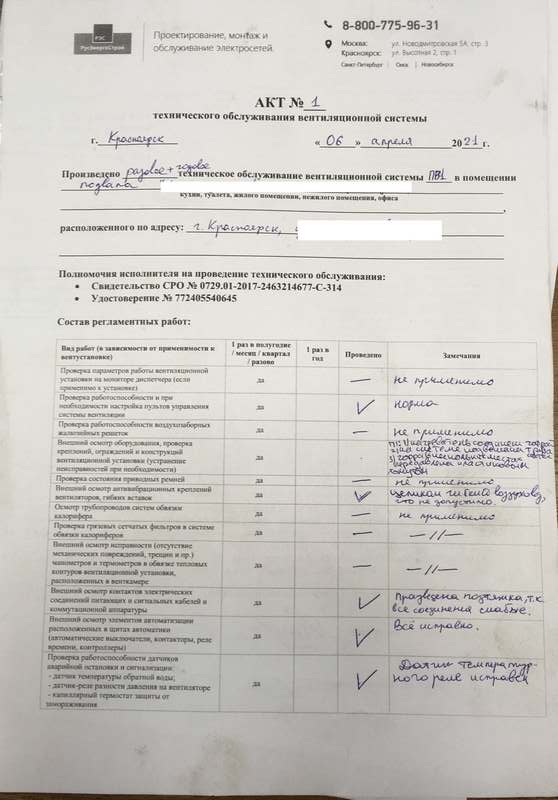 РЭС
РусЭнергоСтрой
Проектирование, монтаж и
обслуживание электросетей.
8-800-775-96-31
Москва: ул. Новодмитровская 5А, стр. 3
Красноярск: ул. Высотная 2, стр. 1
Санкт-Петербург | Сочи | Новосибирск
АКТ № 1
технического обслуживания вентиляционной системы
г. Красноярск « 06 » апреля 2021 г.
Произведено разовое + годовое техническое обслуживание вентиляционной системы ПВ1 в помещении
подвала
кухни, туалета, жилого помещения, нежилого помещения, офиса
расположенного по адресу: г. Красноярск,
Полномочия исполнителя на проведение технического обслуживания:
• Свидетельство СРО № 0729.01-2017-2463214677-С-314
• Удостоверение № 772405540645
Состав регламентных работ:
Вид работ (в зависимости от применимости к вентустановке) 1 раз в полугодие / месяц / квартал / разово 1 раз в год Проведено Замечания
Проверка параметров работы вентиляционной
установки на мониторе диспетчера (если
применимо к установке)
да — не применимо
Проверка работоспособности и при
необходимости настройка пультов управления
системы вентиляции
да ✓ норма
Проверка работоспособности воздухозаборных
жалюзийных решеток
да — не применимо
Внешний осмотр оборудования, проверка
креплений, ограждений и конструкций
вентиляционной установки (устранение
неисправностей при необходимости)
да
Проверка состояния приводных ремней
да — не применимо
Внешний осмотр антивибрационных креплений
вентиляторов, гибких вставок
да ✓ целиком гибкий воздуховод,
что не допустимо.
Осмотр трубопроводов систем обвязки
калорифера
да — не применимо
Проверка грязевых сетчатых фильтров в системе
обвязки калориферов
да — —//—
Внешний осмотр исправности (отсутствие
механических повреждений, трещин и пр.)
манометров и термометров в обвязке тепловых
контуров вентиляционной установки,
расположенных в венткамере
да — —//—
Внешний осмотр контактов электрических
соединений питающих и сигнальных кабелей и
коммутационной аппаратуры
да ✓ Празведена подтяжка, т.к.
все соединения слабые.
Внешний осмотр элементов автоматизации
расположенных в щитах автоматики
(автоматические выключатели, контакторы, реле
времени, контроллеры)
да ✓ Всё исправно.
Проверка работоспособности датчиков
аварийной остановки и сигнализации:
- датчик температуры обратной воды;
- датчик-реле разности давления на вентиляторе
- капиллярный термостат защиты от
замораживания
да ✓ Датчик температур-
ного реле исправен